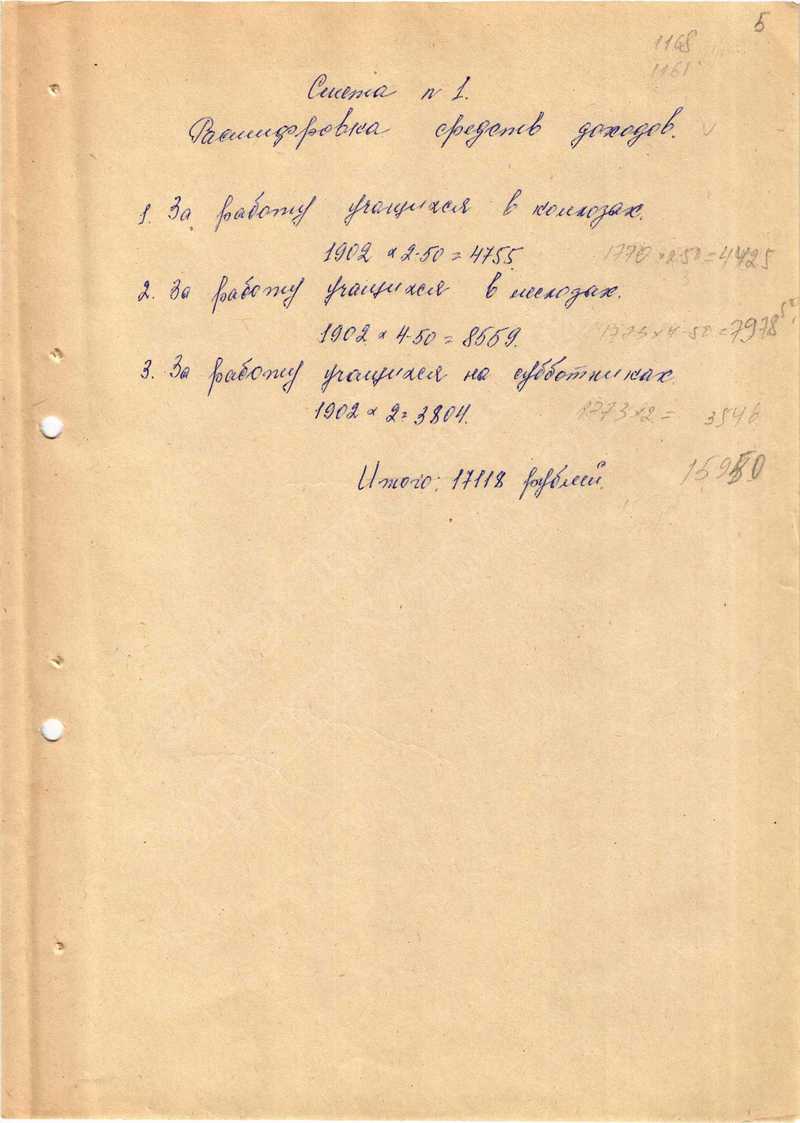 5
1168
1161
Смета п 1.
Расшифровка средств доходов.
1. За работу учащихся в колхозах.
1902 × 2-50 = 4755 1770 × 2-50 = 4425
2. За работу учащихся в лесхозах.
1902 × 4-50 = 8559. 1773 × 4-50 = 7978 50
3. За работу учащихся на субботниках.
1902 × 2 = 3804. 1773 × 2 = 3546
Итого: 17118 рублей. 15950